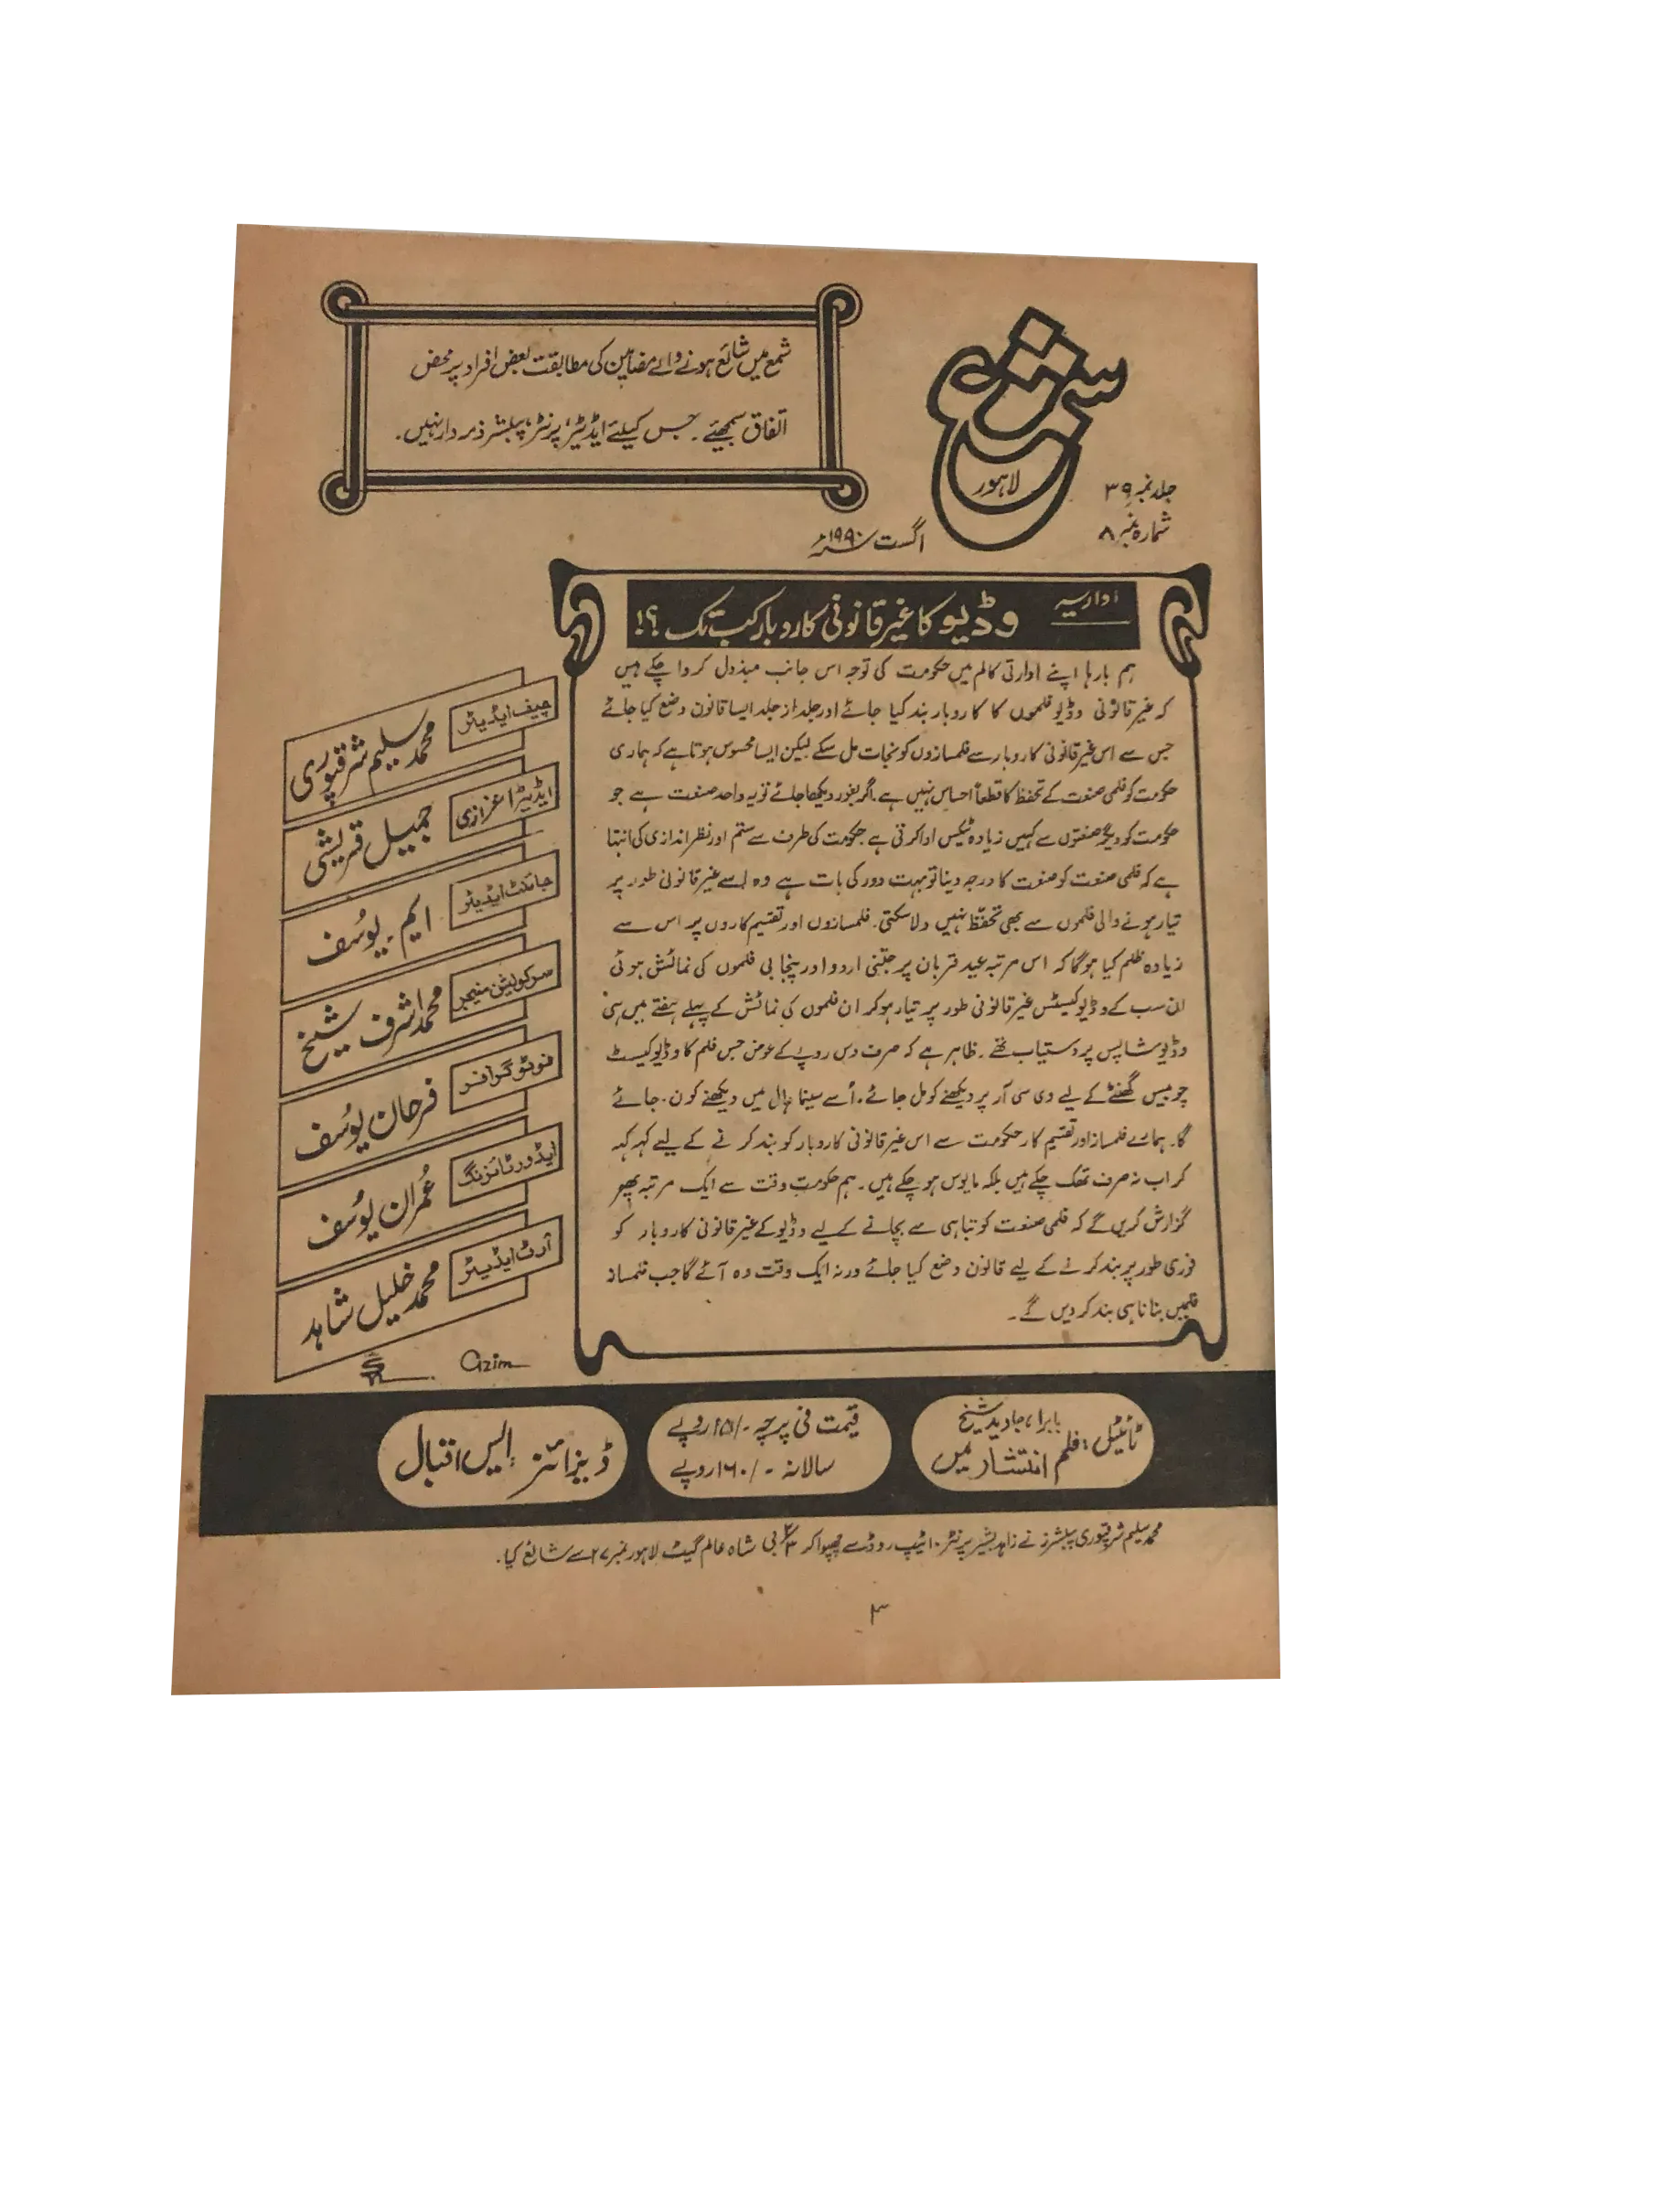 شمع میں شائع ہونے والے مضامین کی مطابقت بعض افراد پر محض
اتفاق سمجھئے۔ جس کیلئے ایڈیٹر، پرنٹر، پبلشر ذمہ دار نہیں۔
شمع
لاہور
جلد نمبر ۳۹
شمارہ نمبر ۸
اگست ۱۹۹۰ء
اداریہ
وڈیو کا غیر قانونی کاروبار کب تک ؟!
ہم بارہا اپنے ادارتی کالم میں حکومت کی توجہ اس جانب مبذول کروا چکے ہیں
کہ غیر قانونی وڈیو فلموں کا کاروبار بند کیا جائے اور جلد از جلد ایسا قانون وضع کیا جائے
جس سے اس غیر قانونی کاروبار سے فلمسازوں کو نجات مل سکے لیکن ایسا محسوس ہوتا ہے کہ ہماری
حکومت کو فلمی صنعت کے تحفظ کا قطعاً احساس نہیں ہے۔ اگر بغور دیکھا جائے تو یہ واحد صنعت ہے جو
حکومت کو دیگر صنعتوں سے کہیں زیادہ ٹیکس ادا کرتی ہے حکومت کی طرف سے ستم اور نظر اندازی کی انتہا
ہے کہ فلمی صنعت کو صنعت کا درجہ دینا تو بہت دور کی بات ہے وہ اسے غیر قانونی طور پر
تیار ہونے والی فلموں سے بھی تحفّظ نہیں دلا سکتی۔ فلمسازوں اور تقسیم کاروں پر اس سے
زیادہ ظلم کیا ہوگا کہ اس مرتبہ عید قربان پر جتنی اردو اور پنجابی فلموں کی نمائش ہوئی
ان سب کے وڈیو کیسٹس غیر قانونی طور پر تیار ہو کر ان فلموں کی نمائش کے پہلے ہفتے میں ہی
وڈیو شاپس پر دستیاب تھے۔ ظاہر ہے کہ صرف دس روپے کے عوض جس فلم کا وڈیو کیسٹ
چوبیس گھنٹے کے لیے وی سی آر پر دیکھنے کو مل جائے۔ اُسے سینما ہال میں دیکھنے کون جائے
گا۔ ہمارے فلمساز اور تقسیم کار حکومت سے اس غیر قانونی کاروبار کو بند کرنے کے لیے کہہ کہہ
کر اب نہ صرف تھک چکے ہیں بلکہ مایوس ہو چکے ہیں۔ ہم حکومت وقت سے ایک مرتبہ پھر
گزارش کریں گے کہ فلمی صنعت کو تباہی سے بچانے کے لیے وڈیو کے غیر قانونی کاروبار کو
فوری طور پر بند کرنے کے لیے قانون وضع کیا جائے ورنہ ایک وقت وہ آئے گا جب فلمساز
فلمیں بنانا ہی بند کر دیں گے۔
چیف ایڈیٹر
محمد سلیم شرقپوری
ایڈیٹر اعزازی
جمیل قریشی
جائنٹ ایڈیٹر
ایم۔ یوسُف
سرکولیشن منیجر
محمد اشرف شیخ
فوٹو گرافر
فرحان یوسُف
ایڈورٹائزنگ
عُمران یوسُف
آرٹ ایڈیٹر
محمد خلیل شاہد
Azim
ٹائیٹل: بابرا، جاوید شیخ
فلم انتشار میں
قیمت فی پرچہ -/۱۵ روپے
سالانہ -/۱۶۰ روپے
ڈیزائنر: ایس اقبال
محمد سلیم شرقپوری پبلشرز نے زاہد بشیر پرنٹر۔ ا ٹیپ روڈ سے چھپوا کر ۳/۳ بی شاہ عالم گیٹ لاہور نمبر ۲۷ سے شائع کیا۔
۳